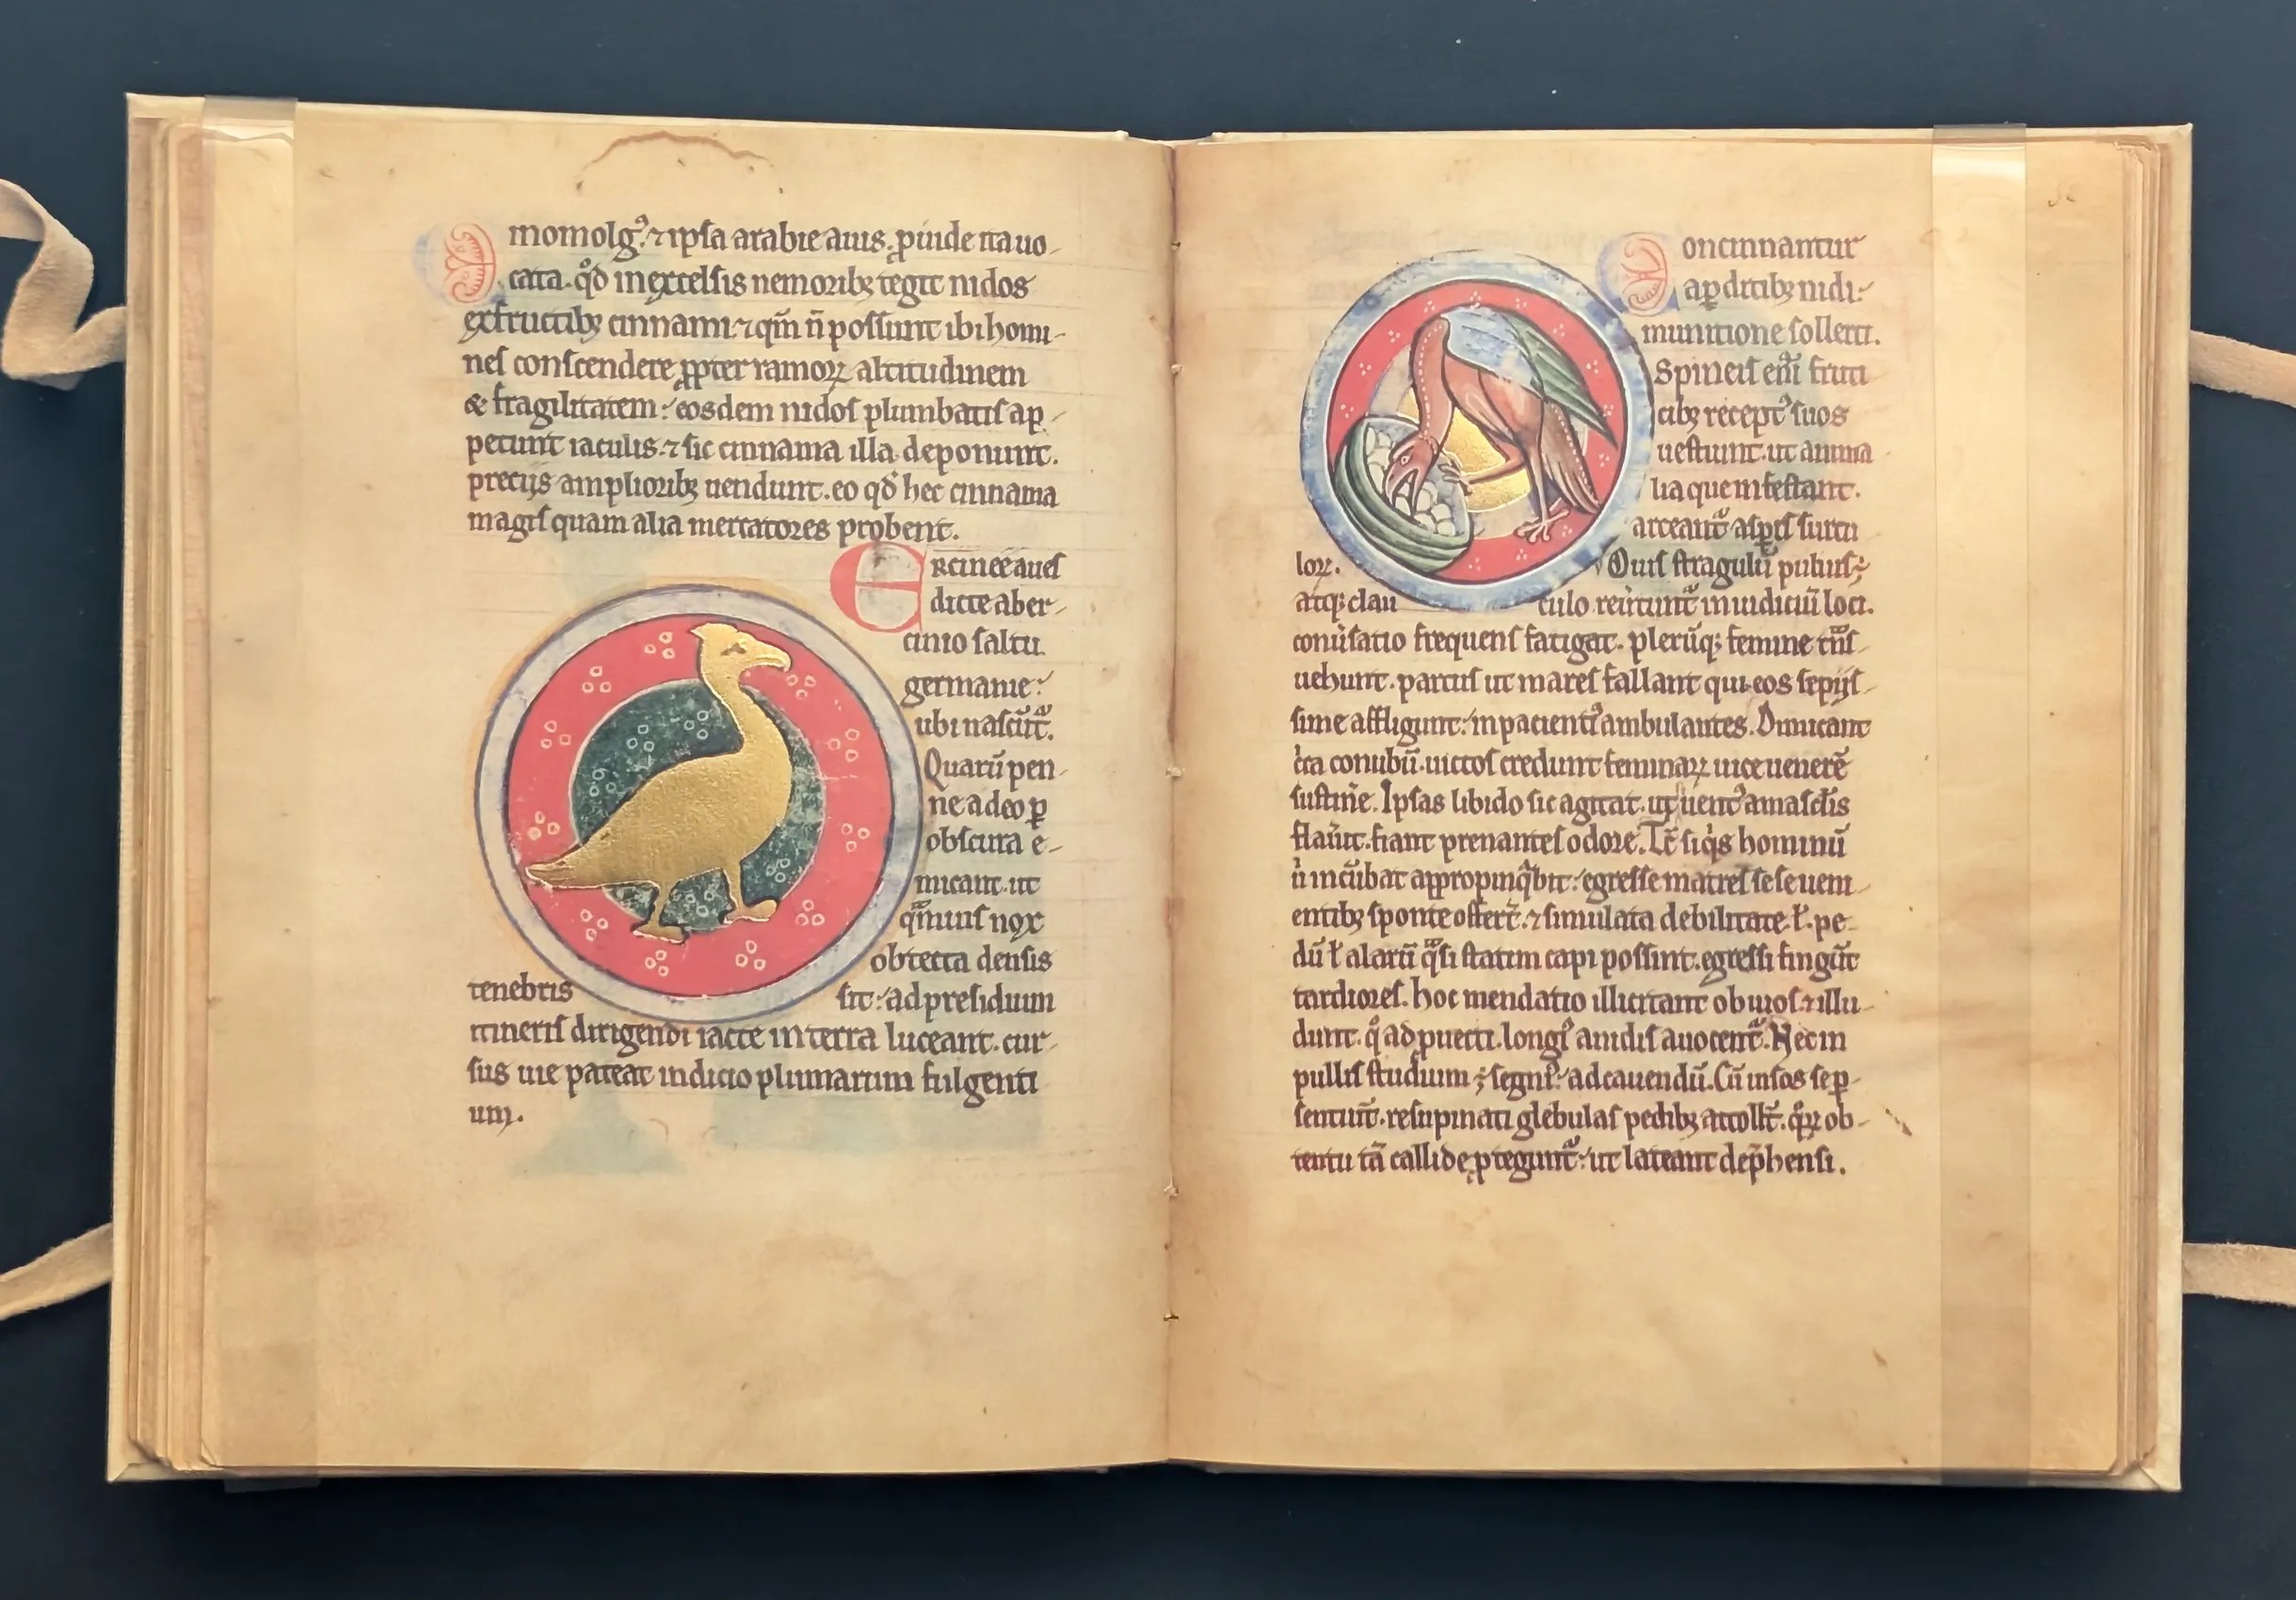 momolg⁹. ⁊ ipsa arabie auis. ꝓinde ita uo-
cata. qd̊ in excelsis nemorib; tegit nidos
ex fructib; cinnami ⁊ qm̄ n̄ possunt ibi homi-
nes conscendere ꝓpter ramoꝝ altitudinem
& fragilitatem: eosdem nidos plumbatis ap-
petunt iaculis. ⁊ sic cinnama illa deponunt.
precijs amplioribꝫ uendunt. eo qd̊ hec cinnama
magis quam alia mercatores probent.
Ercinee aues
dicte a ber-
cinio saltu
germanie:
ubi nascūt᷑.
Quarū pen-
ne adeo ꝑ
obscura e-
micant. ut
qͣmuis nox
obtecta densis
tenebris sit: ad presidium
itineris dirigendi iacte in terra luceant. cur-
sus uie pateat indicio plumarum fulgenti
um.
oncinnantur
a ꝑdicibꝫ nidi:
munitione sollerti.
Spineis eni᷑ fruti
cibꝫ recept⁹ suos
uestiunt. ut anima
lia que infestant.
arceant᷑ asꝑis surcu
loꝝ. Ouis stragulū puluis ÷
atq; clan culo reu᷑tunt᷑ indiciū loci.
conu᷑satio frequens fatigat. plerūq; femine tn̄s
uehunt. partus ut mares fallant qui eos sepijs-
sime affligunt: inpacient⁹ ambulantes. Dimicant
c᷑ca conubiū. uictos credunt feminaꝝ uice uenerē
sustin᷑e. Ipsas libido sic agitat. ut uent⁹ a masclis
flau᷑it. fiant prenantes odore. Tc̄ siqͥs hominū
ů incubat appropinqͣbit: egresse matres sese ueni-
entibꝫ sponte offer᷑t. ⁊ simulata debilitate ł. pe-
dū ł alarū qͣsi statim capi possint. egressi fingūt
tardiores. hoc mendatio illicitant obuios. ⁊ illu-
dunt. qͦ ad puecti. longi⁹ a nidis auocent᷑. Nec in
pullis studium ÷ segni⁹: ad cauendū. Cū uisas se ꝑ-
sentiūt. resupinati glebulas pedibꝫ attollt̄. qͦꝝ ob-
tentu tā callide ꝓtegunt᷑: ut lateant dep̄hensi.